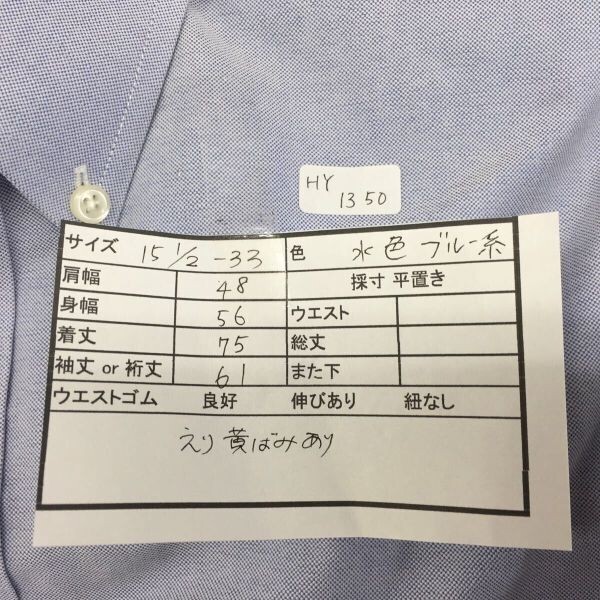 HY
1350
サイズ 15 1/2 -33 色 水色 ブルー系
肩幅 48 採寸 平置き
身幅 56 ウエスト
着丈 75 総丈
袖丈 or 裄丈 61 また下
ウエストゴム 良好 伸びあり 紐なし
えり 黄ばみあり